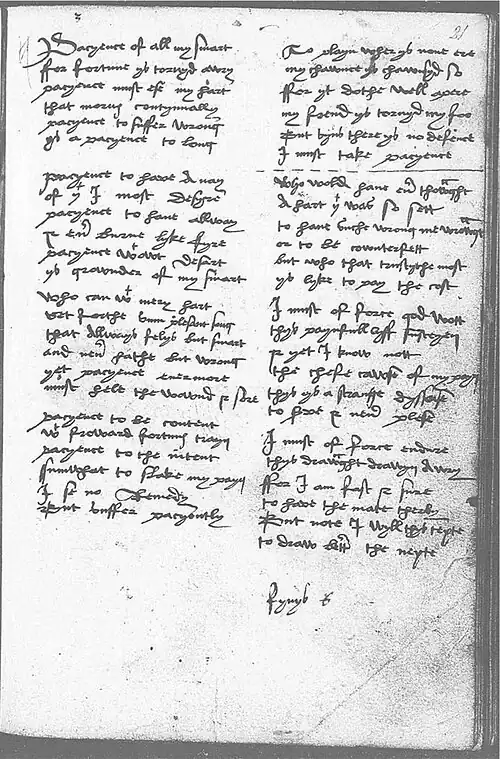 21
Pacyence of all my smart
ffor fortune ys tornyd awry
pacyence must ese my hart
that mornys contynually
pacyence to suffer wrong
ys a pacyence to long
pacyence to have a nay
of yt I most desyre
pacyence to have allway
& evr burne lyke fyre
pacyence wtowt desart
ys grownder of my smart
Who can wt mery hart
set forthe sum plesant song
that allways felys but smart
and nevr hathe but wrong
yet pacyence evermore
must hele the wownd & sore
pacyence to be content
wt froward fortunes trayn
pacyence to the intent
sumwhat to slake my payn
I se no Remedy
But suffer pacyently
To playn wher ys none ere
my chawnce ys chawnsyd so
ffor yt dothe well apere
my frend ys tornyd my foo
But syns there ys no defence
I must take pacyence
who wold have evr thowght
A hart yt was so sett
to have suche wrong me wrowght
or to be cownterfett
but who that trustythe most
ys lyke to pay the cost
I must of force god wott
thys paynfull lyff susteyn
& yet I know nott
the chefe cawse of my payn
thys ys a strange dyssease
to serve & nevr plese
I must of force endure
thys drawght drawyn awry
ffor I am fast & sure
to have the mate therby
But note I wyll thys texte
to draw bettr the nexte
fynys